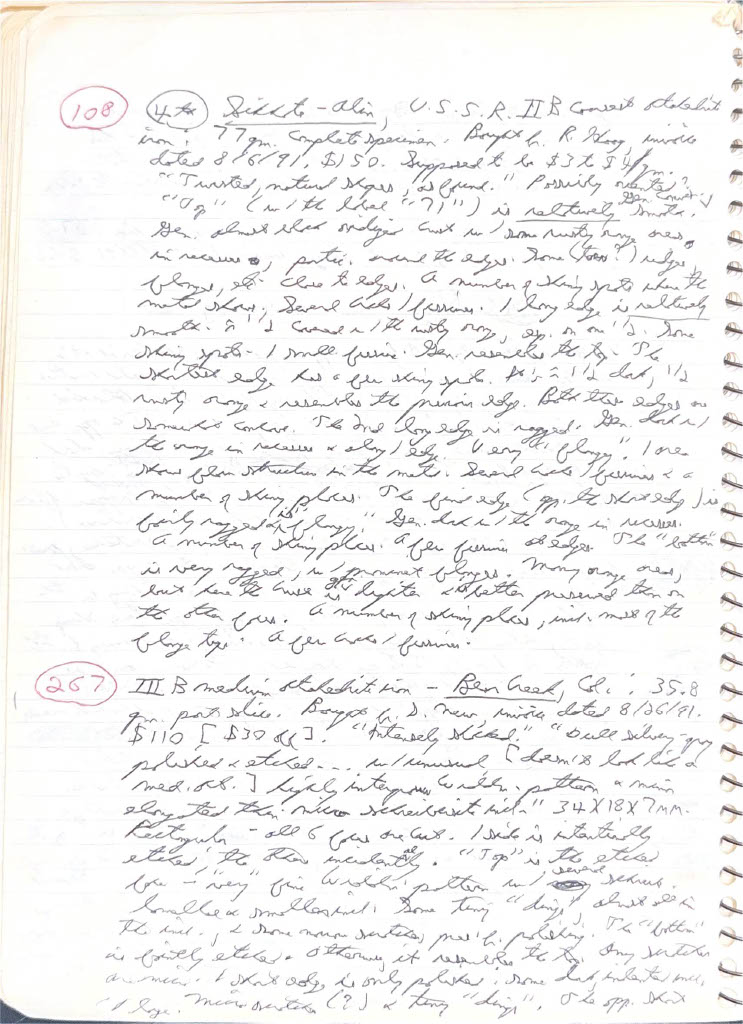 108 4th Sikhote-Alin, U.S.S.R. IIB Coarsest octahedrite
iron: 77 gm. Complete specimen. Bought fr. R. Haag, invoice
dated 8/6/91. $150. Supposed to be $3 to $4/gm.
"Twisted, natural shapes, as found." Possibly oriented? Gen.
"Top" (w/ the label "71") is relatively smooth.
Gen. almost black oxidized crust w/ some rusty orange areas
in recesses, partic. around the edges. Some ridges,
flanges, etc. close to edges. A number of shiny spots where the
metal shows. Several cracks/fissures. 1 long edge is relatively
smooth. 1/2 covered w/ the rusty orange, esp. on one 1/2. Some
shiny spots. 1 small fissure. Gen. resembles the top. The
shortest edge has a few shiny spots. It's ≈ 1/2 dark, 1/2
rusty orange & resembles the previous edge. Both these edges are
somewhat concave. The 2nd long edge is ragged. Gen. dark w/
the orange in recesses & along 1 edge. Very "flangy". 1 area
shows flow structure in the metal. Several cracks/fissures & a
number of shiny places. The final edge (opp. the short edge) is
fairly ragged & "flangy." Gen. dark w/ the orange in recesses.
A number of shiny places. A few fissures at edges. The "bottom"
is very ragged, w/ prominent flanges. Many orange areas,
but here the crust is lighter & better preserved than on
the other faces. A number of shiny places, incl. most of the
flange tops. A few cracks/fissures.
267 IIIB medium octahedrite iron - Bear Creek, Col.: 35.8
gm. part slice. Bought fr. D. New, invoice dated 8/26/91.
$110 [$30 off]. "Intensely shocked." "Dull silvery-gray
polished & etched--- w/ unusual [doesn't look like a
med. oct.] highly intergrown Widdm. pattern & many
elongated thin micro schreibersite incl." 34X18X7mm.
Rectangular - all 6 faces are cut. 1 side is intentionally
etched, the others incidentally. "Top" is the etched
face - "very" fine Widdm. pattern w/ several schreib.
smaller & smallest incl. Some tiny "dings", almost all in
the incl., & some minor scratches prev. fr. polishing. The "bottom"
is faintly etched. Otherwise, it resembles the top. Any scratches
are micro. 1 short edge is only polished. Some dark indented incl.,
1 large. Micro scratches (?) & tiny "dings". The opp. short